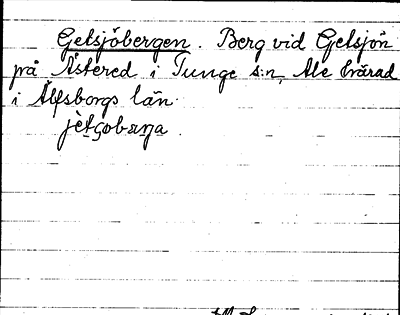 Getsjöbergen. Berg vid Getsjön
på Åstered i Tunge s:n, Ale härad
i Älfsborgs län.